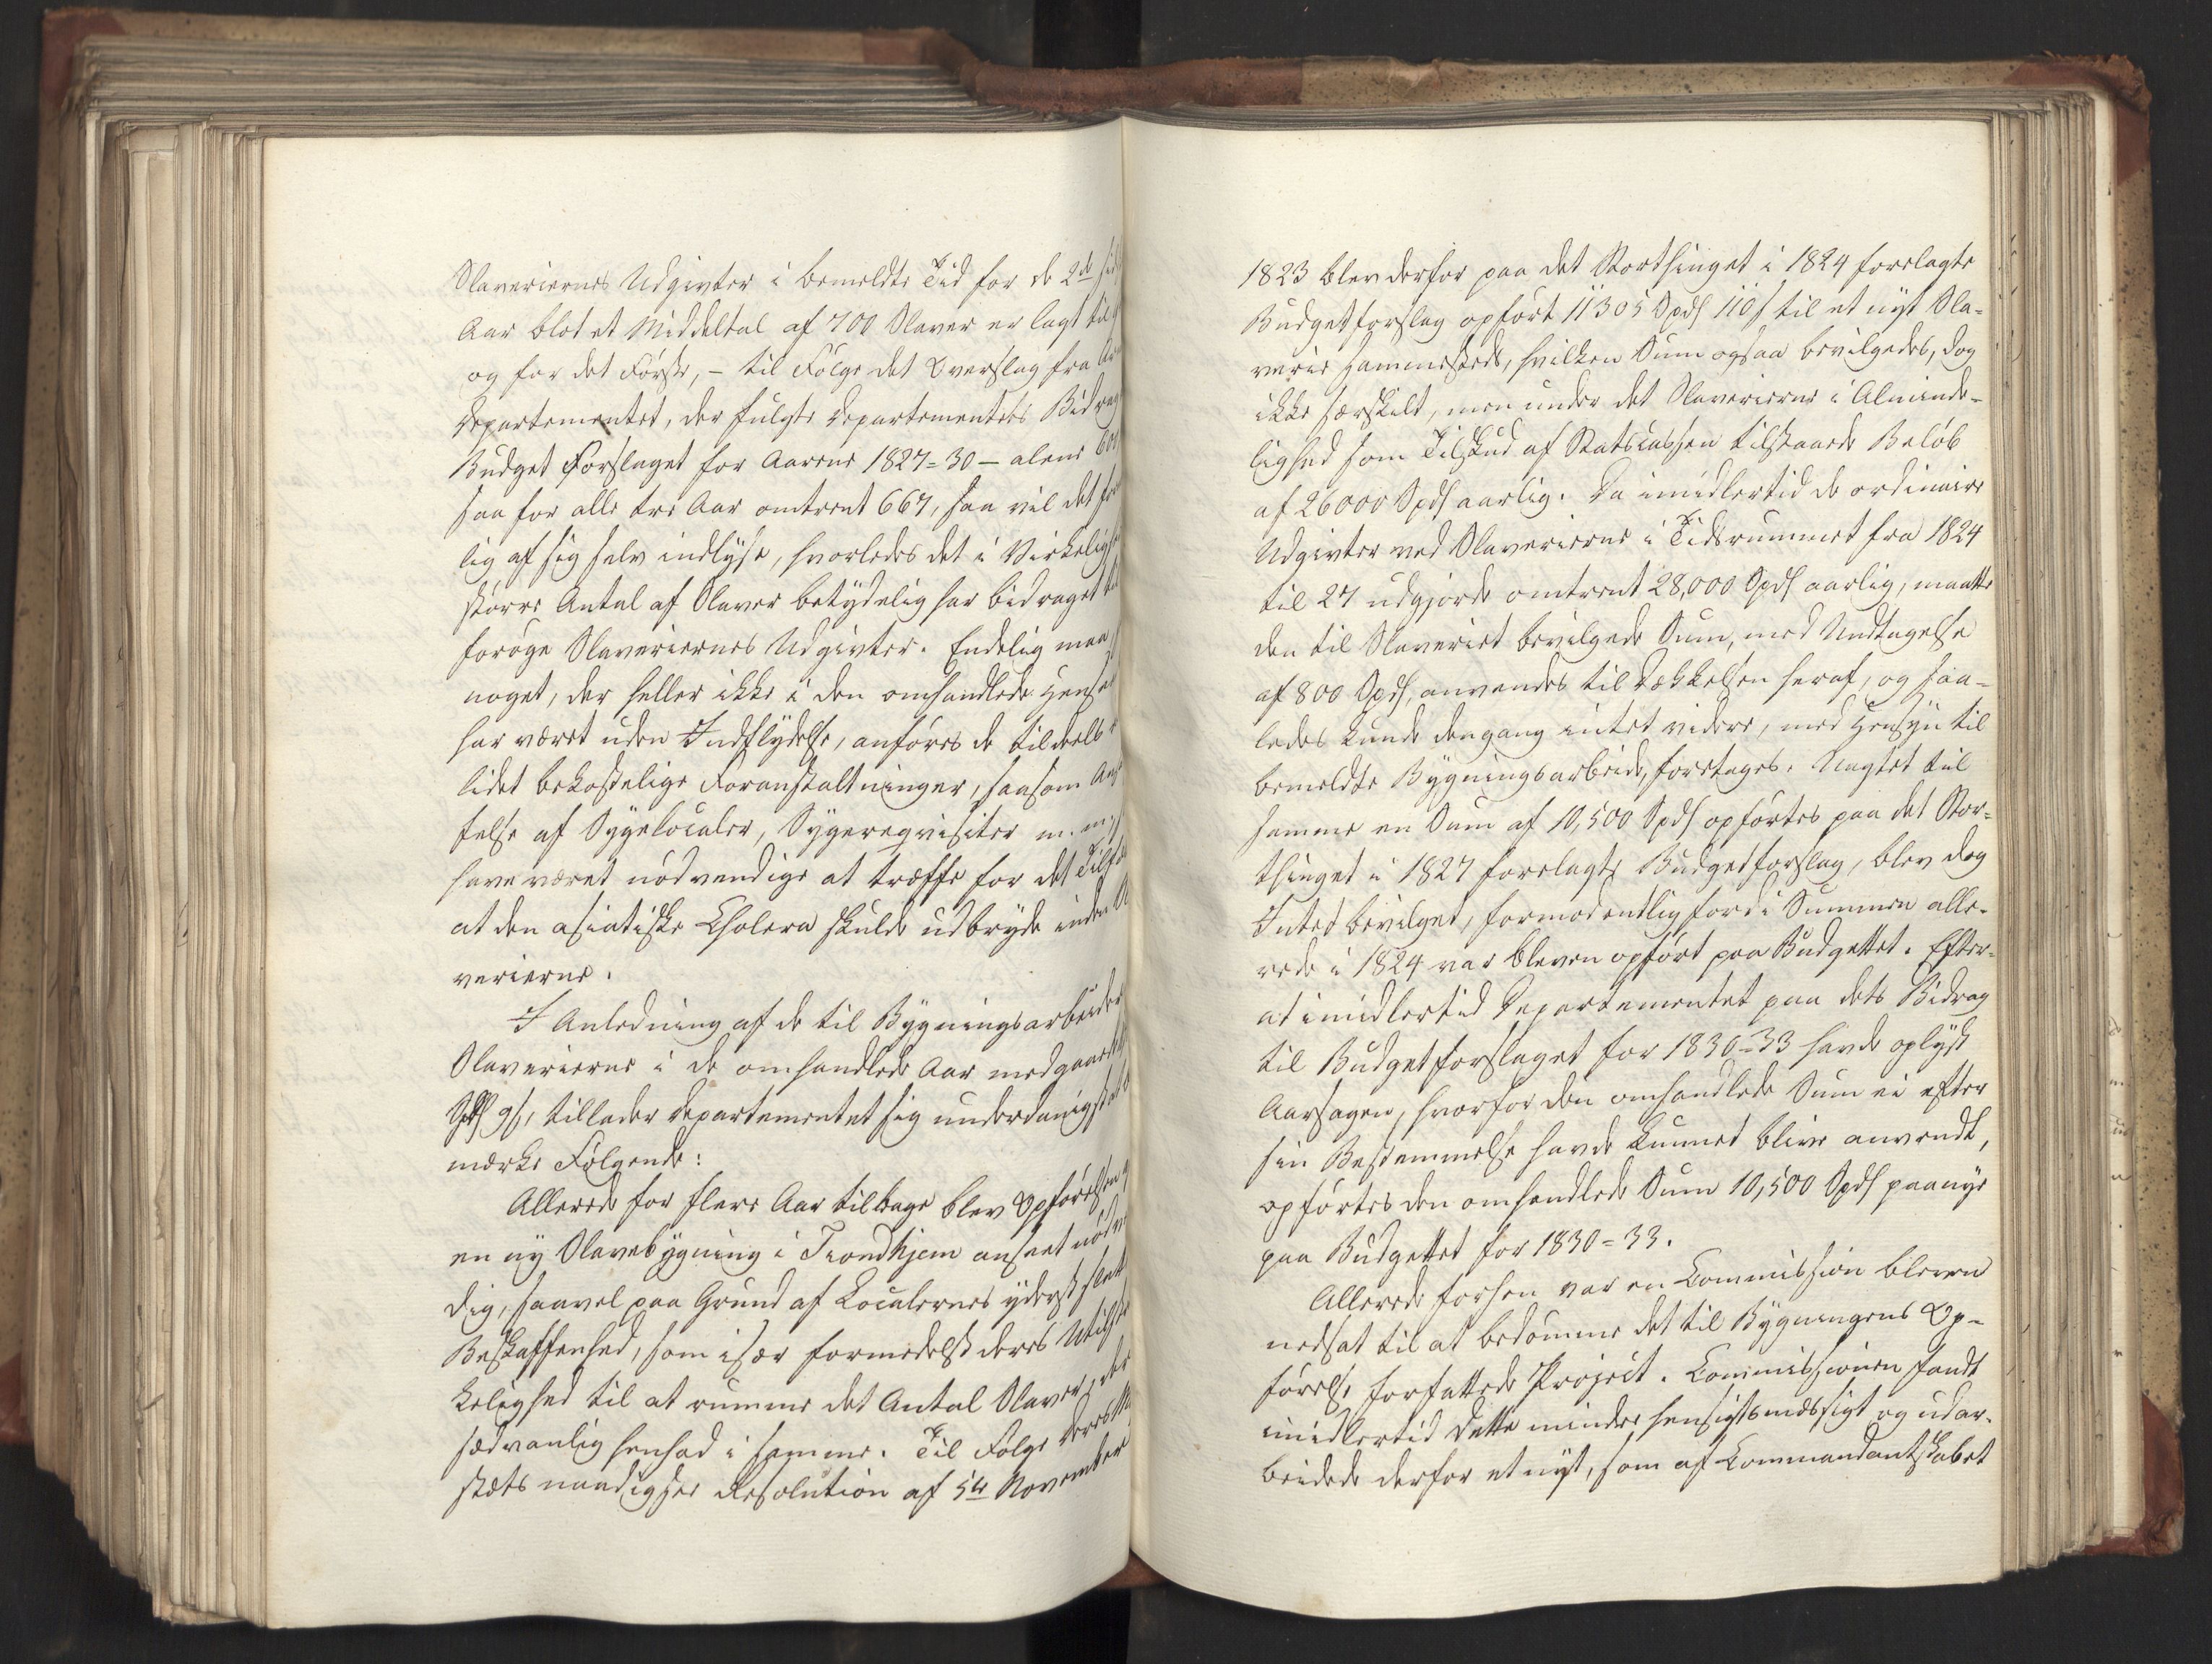 Slaveriernes Udgivter i bemeldte Tid for de 2de
Aar blot et Middeltal af 700 Slaver er lagt til
og for det Første, – til Følge det Overslag fra
Departementet, der fulgte Departementets Bidrag
Budget Forslaget for Aarene 1827=30 – alene
saa for alle tre Aar omtrent 667, saa vil det
lig af sig selv indlyse, hvorledes det i Virkelig
større Antal af Slaver betydelig har bidraget til
forøge Slaveriernes Udgivter. Endelig maa,
noget, der heller ikke i den omhandlede Hense
har været uden Indflydelse, anføres de tildeels
lidet bekostelige Foranstaltninger, saasom
felse af Sygelocaler, Sygereqvisiter m. m.,
have været nødvendige at træffe for det Tilfæ
at den asiatiske Cholera skulde udbryde inden
verierne.
I Anledning af de til Bygningsarbeider
Slaverierne i de omhandlede Aar medgaaede
Spds 9s, tillader Departementet sig underdanigst at
mærke Følgende:
Allerede for flere Aar tilbage blev Opførelsen
en ny Slavebygning i Trondhjem anseet nødv
dig, saavel paa Grund af Localernes yderst slette
Beskaffenhed, som især formedelst deres Utilstr
kelighed til at rumme det Antal Slaver, der
sædvanlig henhad i samme. Til Følge Deres
stæts naadigste Resolution af 5te November
1823 blev derfor paa det Storthinget i 1824 forelagte
Budgetforslag opført 11305 Spds 110s til et nyt Sla-
verie sammesteds, hvilken Sum ogsaa bevilgedes, dog
ikke særskilt, men under det Slaverierne i Alminde-
lighed som Tilskud af Statscassen tilstaaede Beløb
af 26000 Spds aarlig. Da imidlertid de ordinaire
Udgivter ved Slaverierne i Tidsrummet fra 1824
til 27 udgjorde omtrent 28,000 Spds aarlig, maatte
den til Slaveriet bevilgede Sum, med Undtagelse
af 800 Spds, anvendes til Dækkelsen heraf, og saa-
ledes kunde dengang intet videre, med Hensyn til
bemeldte Bygningsarbeide, foretages. Uagtet til
samme en Sum af 10,500 Spds opførtes paa det Stor-
thinget i 1827 forelagte Budgetforslag, blev dog
Intet bevilget, formodentlig fordi Summen alle-
rede i 1824 var bleven opført paa Budgettet. Efter-
at imidlertid Departementet paa dets Bidrag
til Budgetforslaget for 1830=33 havde oplyst
Aarsagen, hvorfor den omhandlede Sum ei efter
sin Bestemmelse havde kunnet blive anvendt,
opførtes den omhandlede Sum 10,500 Spds paanye
paa Budgettet for 1830=33.
Allerede forhen var en Commission bleven
nedsat til at bedømme det til Bygningens Op-
førelse forfattede Project. Commissionen fandt
imidlertid dette mindre hensigtsmæssigt og udar-
beidede derfor et nyt, som af Commandantskabet